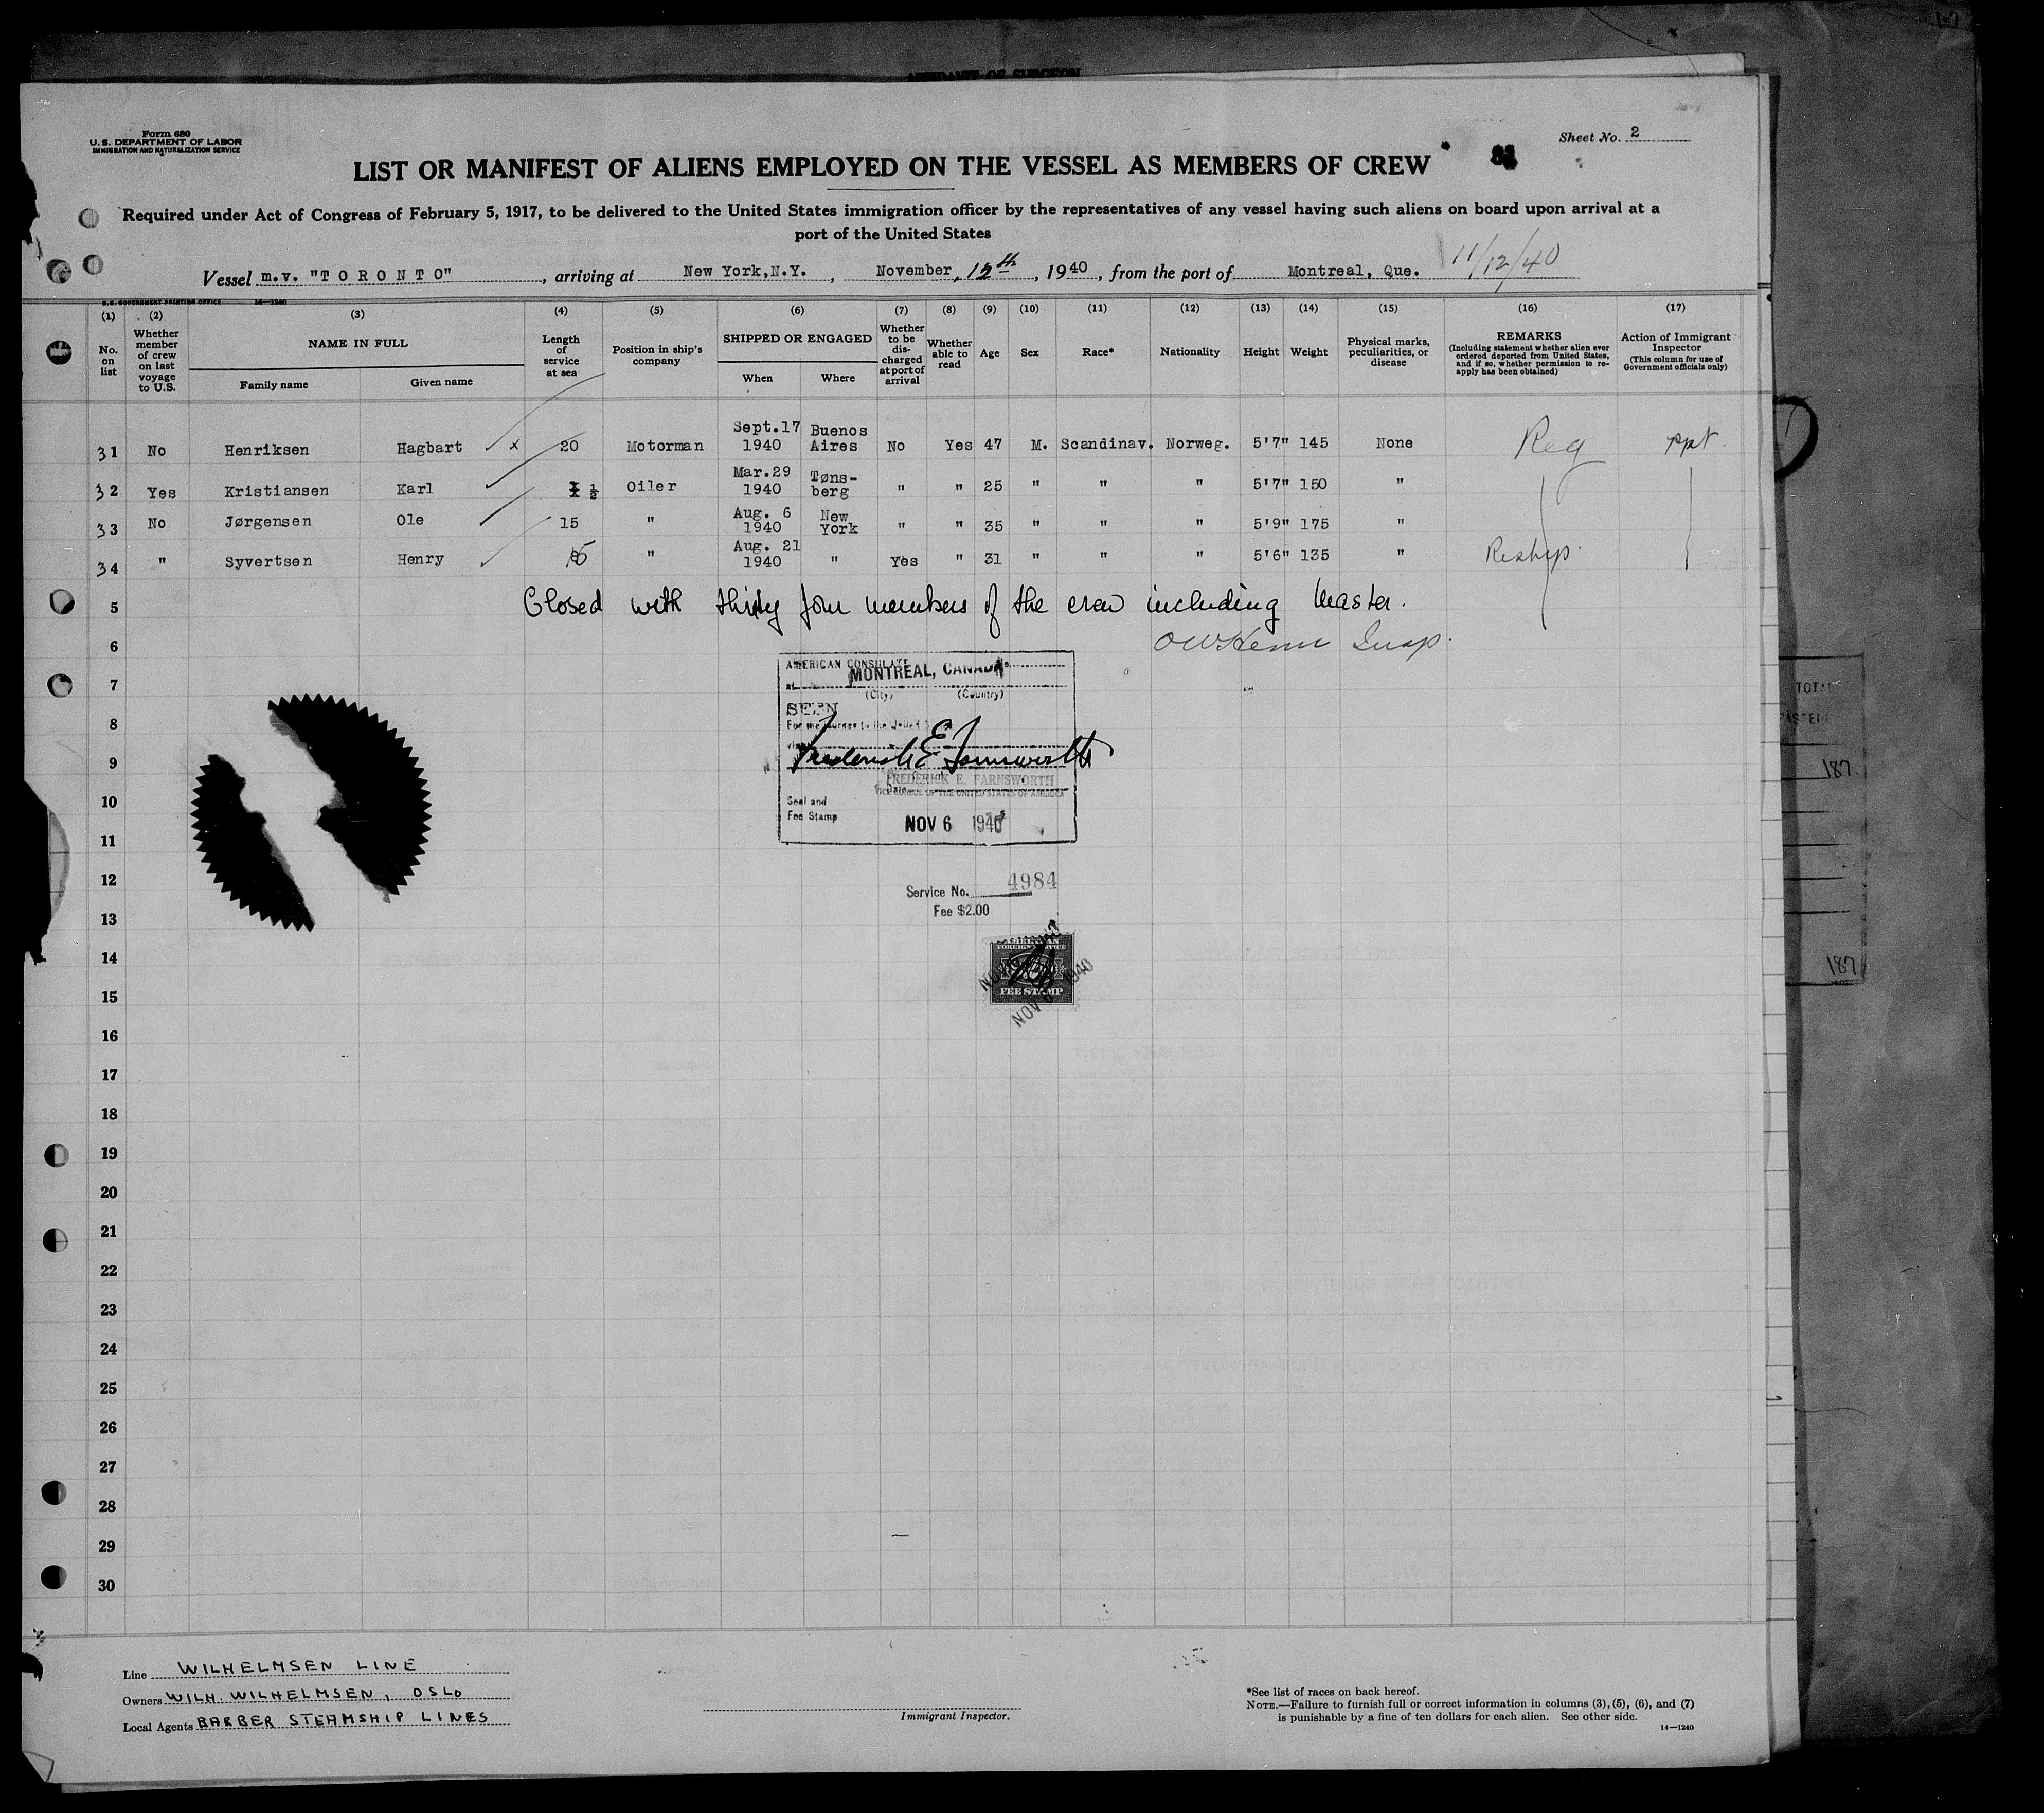 AFFIDAVIT OF SURGEON
Form 680
U.S. DEPARTMENT OF LABOR
IMMIGRATION AND NATURALIZATION SERVICE
Sheet No. 2
LIST OR MANIFEST OF ALIENS EMPLOYED ON THE VESSEL AS MEMBERS OF CREW
Required under Act of Congress of February 5, 1917, to be delivered to the United States immigration officer by the representatives of any vessel having such aliens on board upon arrival at a
port of the United States
11/12/40
Vessel m.v. "TORONTO", arriving at New York,N.Y., November, 12th, 1940, from the port of Montreal, Que.
U.S. GOVERNMENT PRINTING OFFICE 14—1240
(1) (2) (3) (4) (5) (6) (7) (8) (9) (10) (11) (12) (13) (14) (15) (16) (17)
No. on list
Whether member of crew on last voyage to U.S.
NAME IN FULL
Family name Given name
Length of service at sea
Position in ship's company
SHIPPED OR ENGAGED
When Where
Whether to be discharged at port of arrival
Whether able to read
Age
Sex
Race*
Nationality
Height
Weight
Physical marks, peculiarities, or disease
REMARKS
(Including statement whether alien ever ordered deported from United States, and if so, whether permission to reapply has been obtained)
Action of Immigrant Inspector
(This column for use of Government officials only)
31 No Henriksen Hagbart x 20 Motorman Sept.17 1940 Buenos Aires No Yes 47 M. Scandinav. Norweg. 5'7" 145 None Reg ppt
32 Yes Kristiansen Karl ½ Oiler Mar.29 1940 Tøns-berg " " 25 " " " 5'7" 150 "
33 No Jørgensen Ole 15 " Aug. 6 1940 New York " " 35 " " " 5'9" 175 "
34 " Syvertsen Henry " Aug. 21 1940 " Yes " 31 " " " 5'6" 135 " Reship.
5 Closed with thirty four members of the crew including Master.
6 Insp.
7
8
9
10
11
12
13
14
15
16
17
18
19
20
21
22
23
24
25
26
27
28
29
30
AMERICAN CONSULATE
at MONTREAL, CANADA
(City) (Country)
SEEN
For the journey to the United
Frederick E Farnsworth
FREDERICK E. FARNSWORTH
Date
VICE CONSUL OF THE UNITED STATES OF AMERICA
Seal and
Fee Stamp
NOV 6 1940
Service No. 4984
Fee $2.00
AMERICAN
FOREIGN SERVICE
FEE STAMP
NOV 6 1940
TOTAL
187
187
Line WILHELMSEN LINE
Owners WILH. WILHELMSEN, OSLO
Local Agents BARBER STEAMSHIP LINES
Immigrant Inspector.
*See list of races on back hereof.
NOTE.—Failure to furnish full or correct information in columns (3), (5), (6), and (7)
is punishable by a fine of ten dollars for each alien. See other side.
14—1240